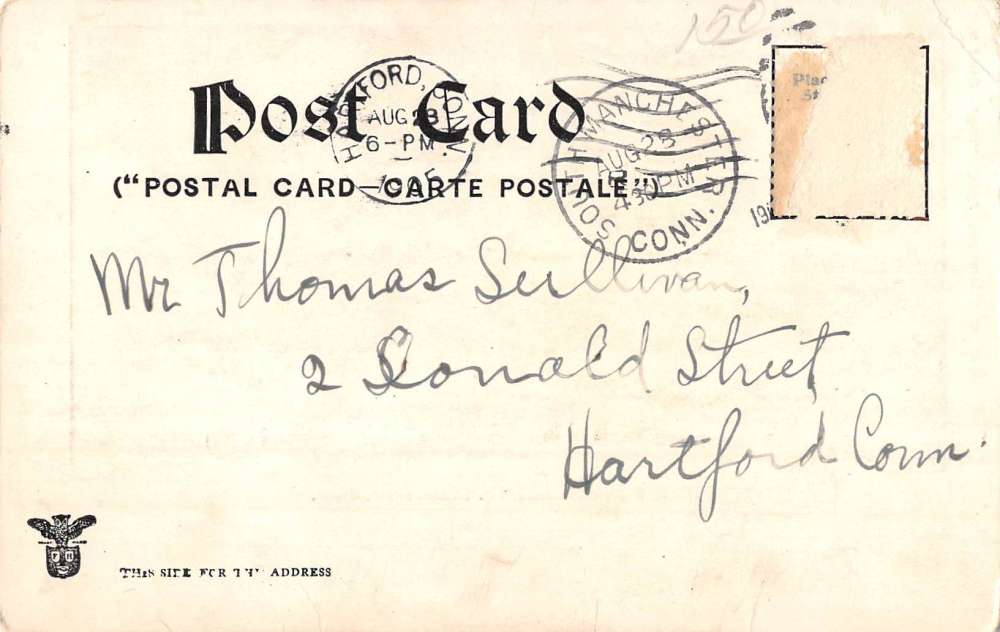 150
Post Card
("POSTAL CARD—CARTE POSTALE")
HARTFORD, CONN.
AUG 28
6-PM
1905
SOUTH MANCHESTER
AUG 28
430PM
CONN.
Mr Thomas Sullivan,
2 Donald Street
Hartford Conn.
THIS SIDE FOR THE ADDRESS